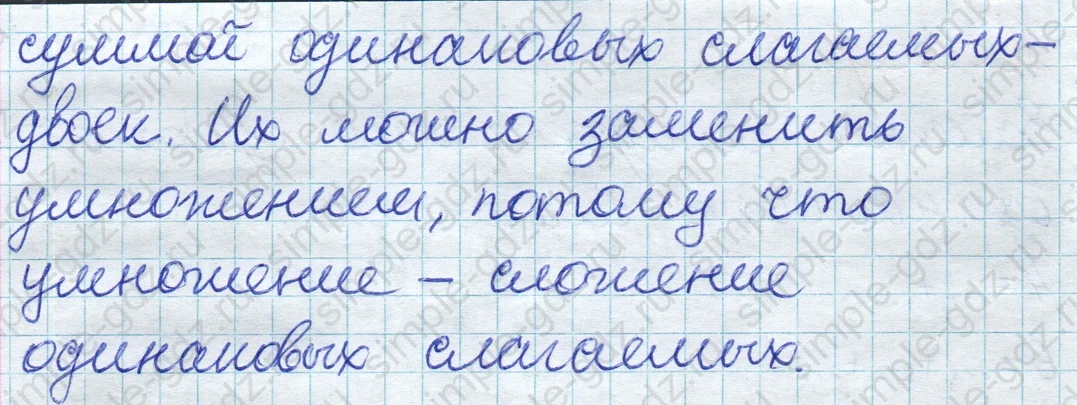 суммой одинаковых слагаемых-
двоек. Их можно заменить
умножением, потому что
умножение - сложение
одинаковых слагаемых.